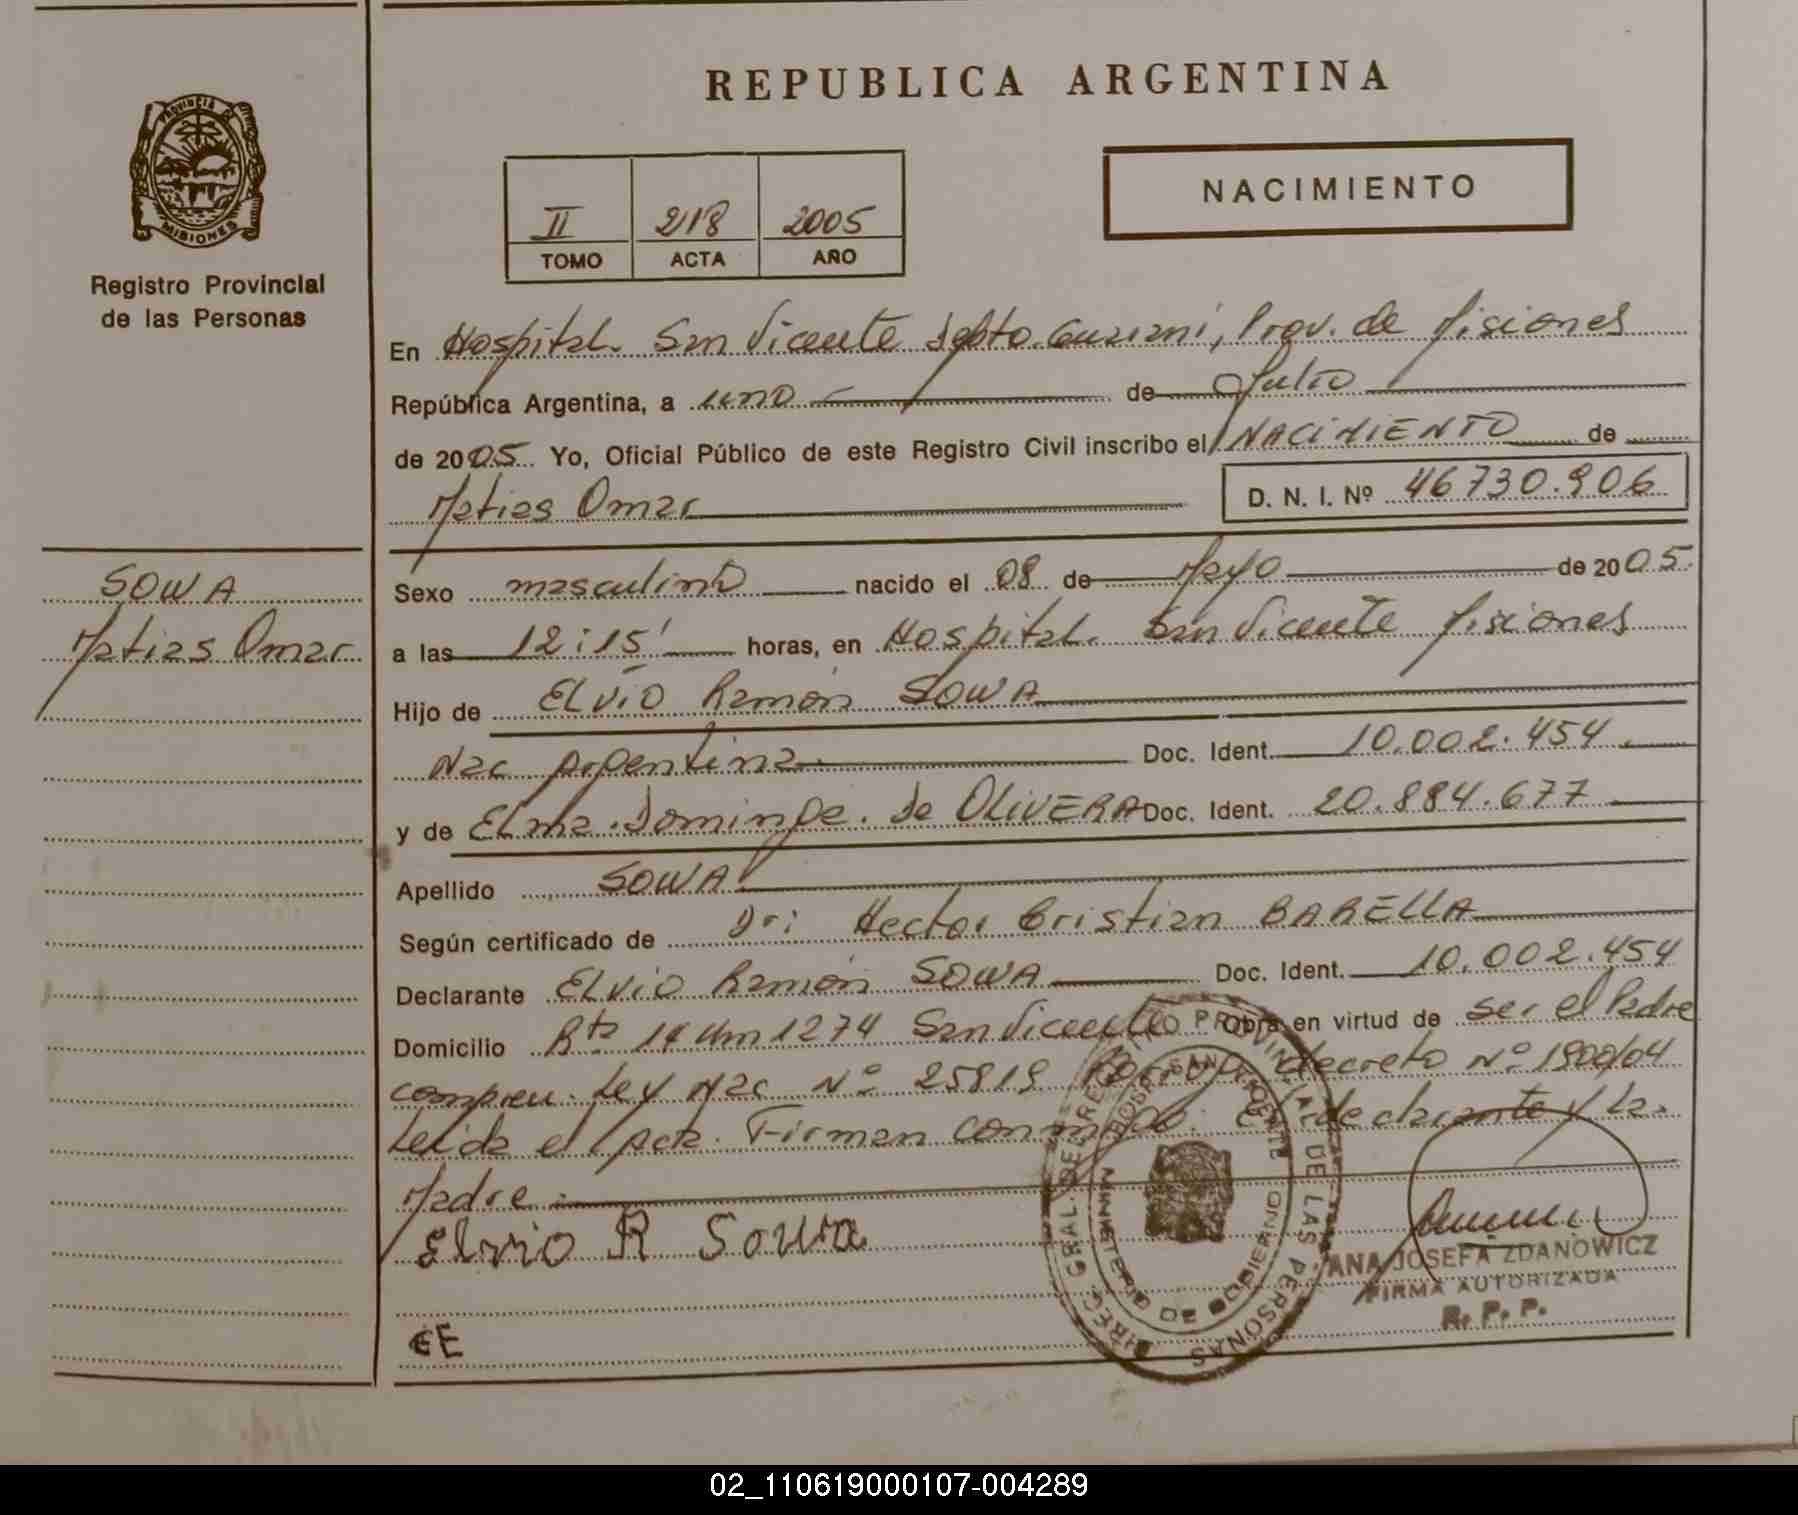 REPUBLICA ARGENTINA
PROVINCIA DE
MISIONES
Registro Provincial
de las Personas
NACIMIENTO
II 218 2005
TOMO ACTA AÑO
En Hospital. San Vicente Dpto. Guaraní, Prov. de Misiones
República Argentina, a uno de Julio
de 2005 Yo, Oficial Público de este Registro Civil inscribo el NACIMIENTO de
Matias Omar D. N. I. Nº 46730.906
SOWA
Matias Omar
Sexo masculino nacido el 08 de Mayo de 2005.
a las 12:15' horas, en Hospital. San Vicente Misiones
Hijo de ELVIO Ramón SOWA
Nac Argentina. Doc. Ident. 10.002.454
y de Elma. Dominga. de OLIVERA Doc. Ident. 20.884.677
Apellido SOWA
Según certificado de Dr: Hector Cristian BARELLA
Declarante ELVIO Ramón SOWA Doc. Ident. 10.002.454
Domicilio Rta 14 Km 1274 San Vicente Obra en virtud de ser el Padre
Ley Nac Nº 25819 decreto Nº 1800/04
Leida el Acta. Firman conmigo. El declarante y La.
Madre.
Elvio R Sowa
EE
DIREC. GRAL. DE REGISTRO PROVINCIAL DE LAS PERSONAS
MINISTERIO DE GOBIERNO
HOSP. SAN VICENTE
ANA JOSEFA ZDANOWICZ
FIRMA AUTORIZADA
R. P. P.
02_110619000107-004289